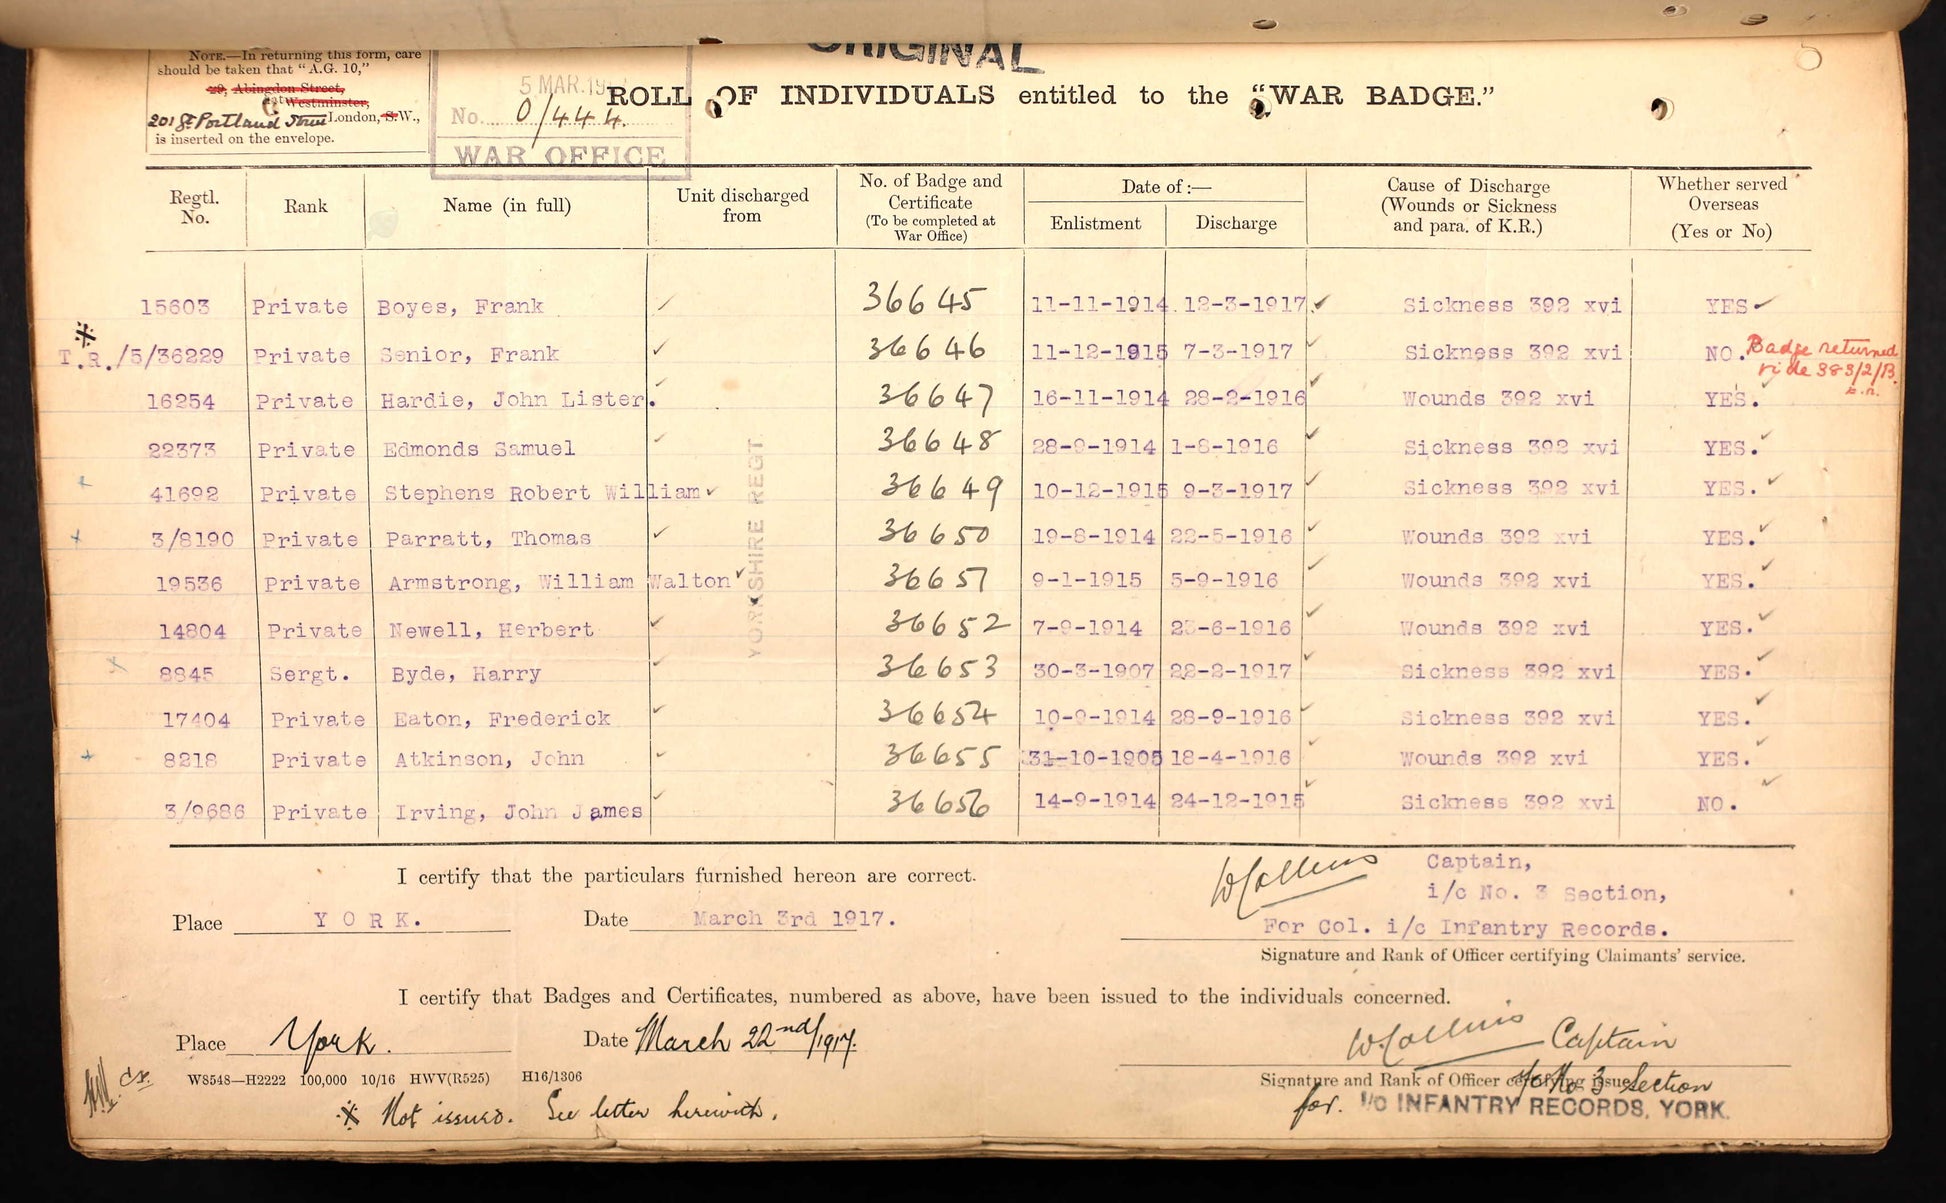 ORIGINAL
NOTE.—In returning this form, care
should be taken that "A.G. 10,"
29, Abingdon Street,
Westminster,
201 Gt Portland Street London, S.W.,
is inserted on the envelope.
5 MAR. 19
No. 0/444.
WAR OFFICE
ROLL OF INDIVIDUALS entitled to the "WAR BADGE."
Regtl. No. Rank Name (in full) Unit discharged from No. of Badge and Certificate (To be completed at War Office) Date of :— Enlistment Discharge Cause of Discharge (Wounds or Sickness and para. of K.R.) Whether served Overseas (Yes or No)
15603 Private Boyes, Frank 36645 11-11-1914 12-3-1917 Sickness 392 xvi YES
T.R./5/36229 Private Senior, Frank 36646 11-12-1915 7-3-1917 Sickness 392 xvi NO. Badge returned
vide 383/2/B.
16254 Private Hardie, John Lister. 36647 16-11-1914 28-2-1916 Wounds 392 xvi YES.
22373 Private Edmonds Samuel 36648 28-9-1914 1-8-1916 Sickness 392 xvi YES.
41692 Private Stephens Robert William 36649 10-12-1915 9-3-1917 Sickness 392 xvi YES.
3/8190 Private Parratt, Thomas 36650 19-8-1914 22-5-1916 Wounds 392 xvi YES.
19536 Private Armstrong, William Walton 36651 9-1-1915 5-9-1916 Wounds 392 xvi YES.
14804 Private Newell, Herbert 36652 7-9-1914 23-6-1916 Wounds 392 xvi YES.
8845 Sergt. Byde, Harry 36653 30-3-1907 22-2-1917 Sickness 392 xvi YES.
17404 Private Eaton, Frederick 36654 10-9-1914 28-9-1916 Sickness 392 xvi YES.
8218 Private Atkinson, John 36655 31-10-1905 18-4-1916 Wounds 392 xvi YES.
3/9686 Private Irving, John James 36656 14-9-1914 24-12-1915 Sickness 392 xvi NO.
YORKSHIRE REGT.
I certify that the particulars furnished hereon are correct.
W Collins Captain,
i/c No. 3 Section,
Place YORK. Date March 3rd 1917. For Col. i/c Infantry Records.
Signature and Rank of Officer certifying Claimants' service.
I certify that Badges and Certificates, numbered as above, have been issued to the individuals concerned.
Place York. Date March 22nd/1917. W. Collins Captain
Signature and Rank of Officer certifying issue
i/c No 3 Section
for. I/C INFANTRY RECORDS, YORK.
W8548—H2222 100,000 10/16 HWV(R525) H16/1306
※ Not issued. See letter herewith.